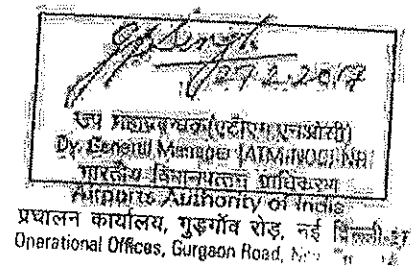 27.2.2017
उप महाप्रबन्धक(एटीएम,एनओसी)
Dy. General Manager (ATM/NOC) NR
भारतीय विमानपत्तन प्राधिकरण
Airports Authority of India
प्रचालन कार्यालय, गुड़गाँव रोड़, नई दिल्ली-37
Operational Offices, Gurgaon Road,